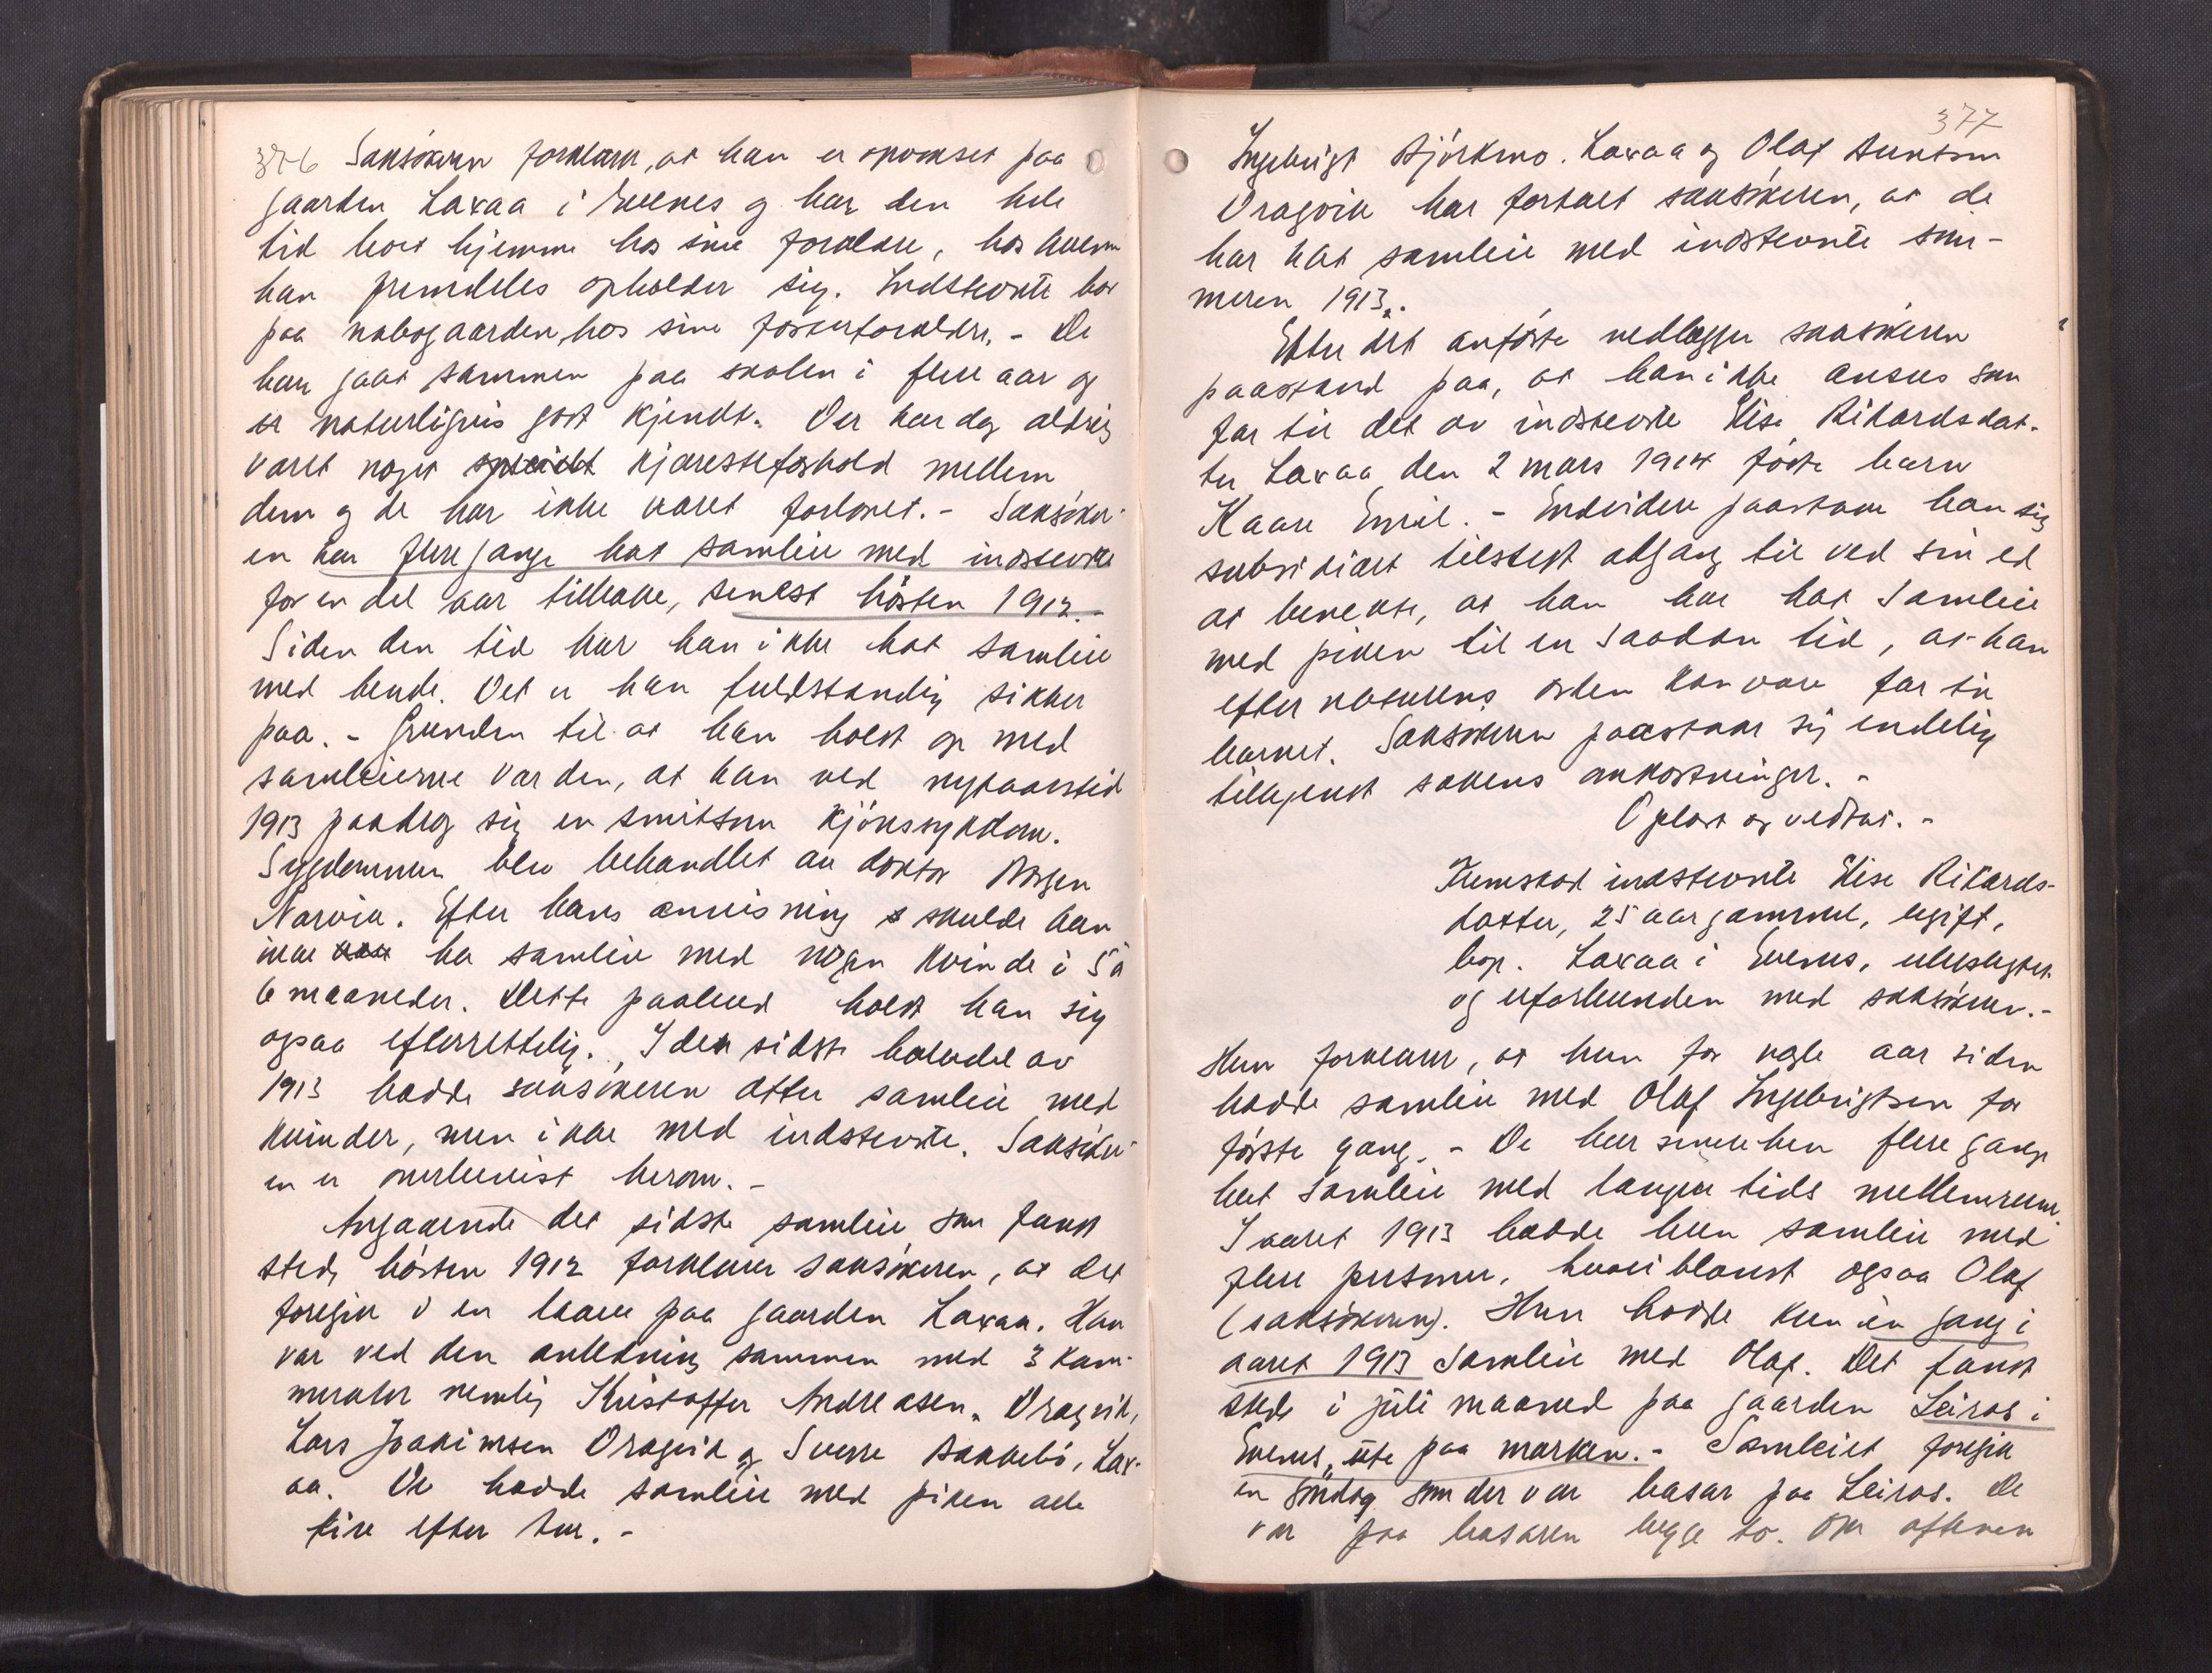 376 Saksökeren forklarer, at han er opvokset paa
gaarden Laxaa i Evenes og har den hele
tid boet hjemme hos sine forældre, hos hvem
han fremdeles opholder sig. Indstevnte bor
paa nabogaarden, hos sine fosterforældre. - De
har gaat sammen paa skolen i flere aar og
er naturligvis godt kjendt. Der har dog aldrig
været noget kjæresteforhold mellem
dem og de har ikke været forlovet. - Saksöker-
en har flere gange hat samleie med indstevnte
for en del aar tilbake, senest hösten 1912. -
Siden den tid har han ikke hat samleie
med hende. Det er han fuldstændig sikker
paa. - Grunden til at han holdt op med
samleierne var den, at han ved nytaarstid
1913 paadrog sig en smitsom kjönssykdom.
Sygdommen blev behandlet av doktor
Narvik. Efter hans anvisning skulde han
ikke ha samleie med nogen kvinde i 5 à
6 maaneder. Dette paabud holdt han sig
ogsaa efterrettelig. I den sidste halvdel av
1913 hadde saksökeren atter samleie med
kvinder, men ikke med indstevnte. Saksöker-
en er overbevist herom. -
Angaaende det sidste samleie som fandt
sted, hösten 1912 forklarer saksökeren, at det
foregik i en laave paa gaarden Laxaa. Han
var ved den anledning sammen med 3 kam-
merater nemlig Kristoffer Andreasen, Dragvik,
Lars Joakimsen Dragvik og Sverre Aakkebö, Lax-
aa. De hadde samleie med piken alle
fire efter tur. -
377
Ingebrigt Björkmo. Laxaa og Olaf
Dragvik har fortalt saksökeren, at de
har hat samleie med indstevnte som-
meren 1913.
Efter det anförte nedlægger saksökeren
paastand paa, at han ikke ansees som
far til det av indstevnte Elise Rikardsdat-
ter Laxaa den 2 mars 1914 födte barn
Kaare Emil. - Endvidere paastaar han sig
subsidiært tilstedt adgang til ved sin ed
at benegte, at han har hat samleie
med piken til en saadan tid, at han
efter naturens orden kan være far til
barnet. Saksökeren paastaar sig endelig
tilkjendt sakens omkostninger. -
Oplæst og vedtat. -
Fremstod indstevnte Elise Rikards-
datter, 25 aar gammel, ugift,
bop. Laxaa i Evenes, ubeslegtet
og uforbunden med saksökeren. -
Hun forklarer, at hun for nogle aar siden
hadde samleie med Olaf Ingebrigtsen for
förste gang. - De har senere hen flere gange
hat samleie med længere tids mellemrum.
I aaret 1913 hadde hun samleie med
flere personer, hvoriblandt ogsaa Olaf
(saksökeren). Hun hadde kun én gang i
aaret 1913 samleie med Olaf. Det fandt
sted i juli maaned paa gaarden Leiros i
Evenes, ute paa marken. - Samleiet foregik
en söndag som der var basar paa Leiros. De
var paa basaren begge to. Om aftenen